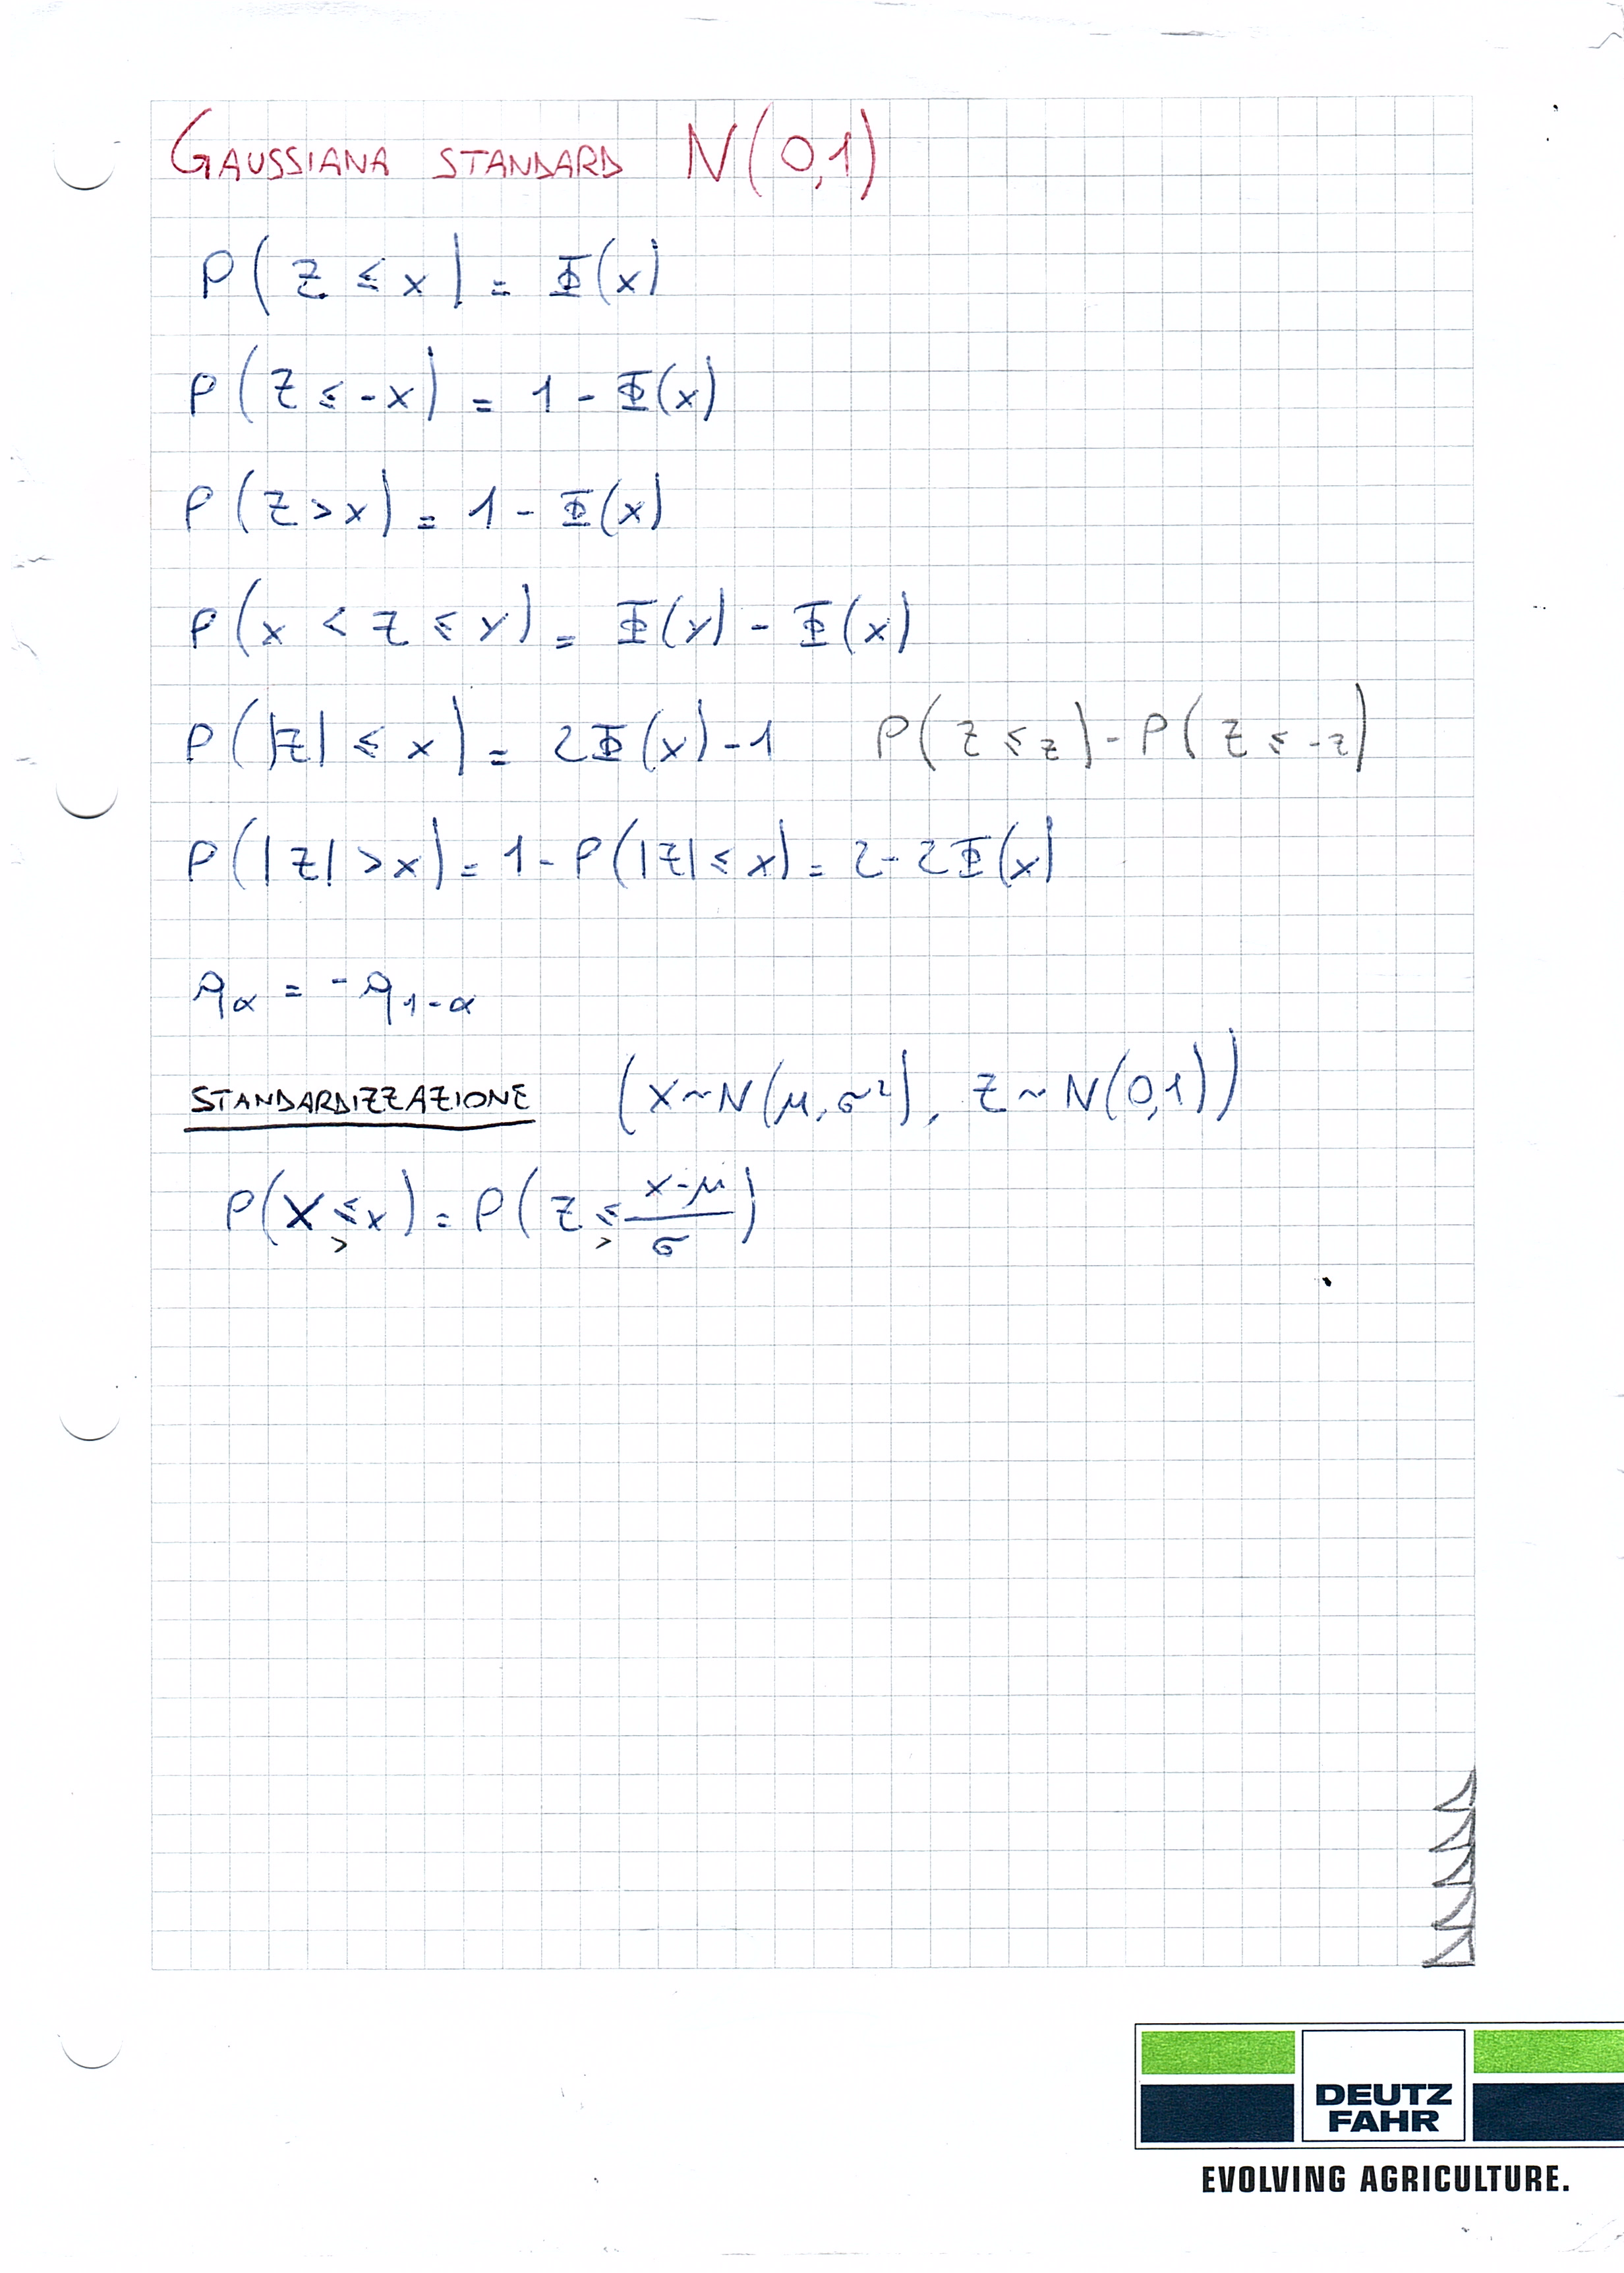 GAUSSIANA STANDARD N(0,1)
P(Z ≤ x) = Φ(x)
P(Z ≤ -x) = 1 - Φ(x)
P(Z > x) = 1 - Φ(x)
P(x < Z ≤ y) = Φ(y) - Φ(x)
P(|Z| ≤ x) = 2Φ(x) - 1 P(Z ≤ z) - P(Z ≤ -z)
P(|Z| > x) = 1 - P(|Z| ≤ x) = 2 - 2Φ(x)
q_α = -q_{1-α}
STANDARDIZZAZIONE (X ~ N(μ, σ²), Z ~ N(0,1))
P(X ≤ x) = P(Z ≤ (x-μ)/σ)
> >
DEUTZ
FAHR
EVOLVING AGRICULTURE.